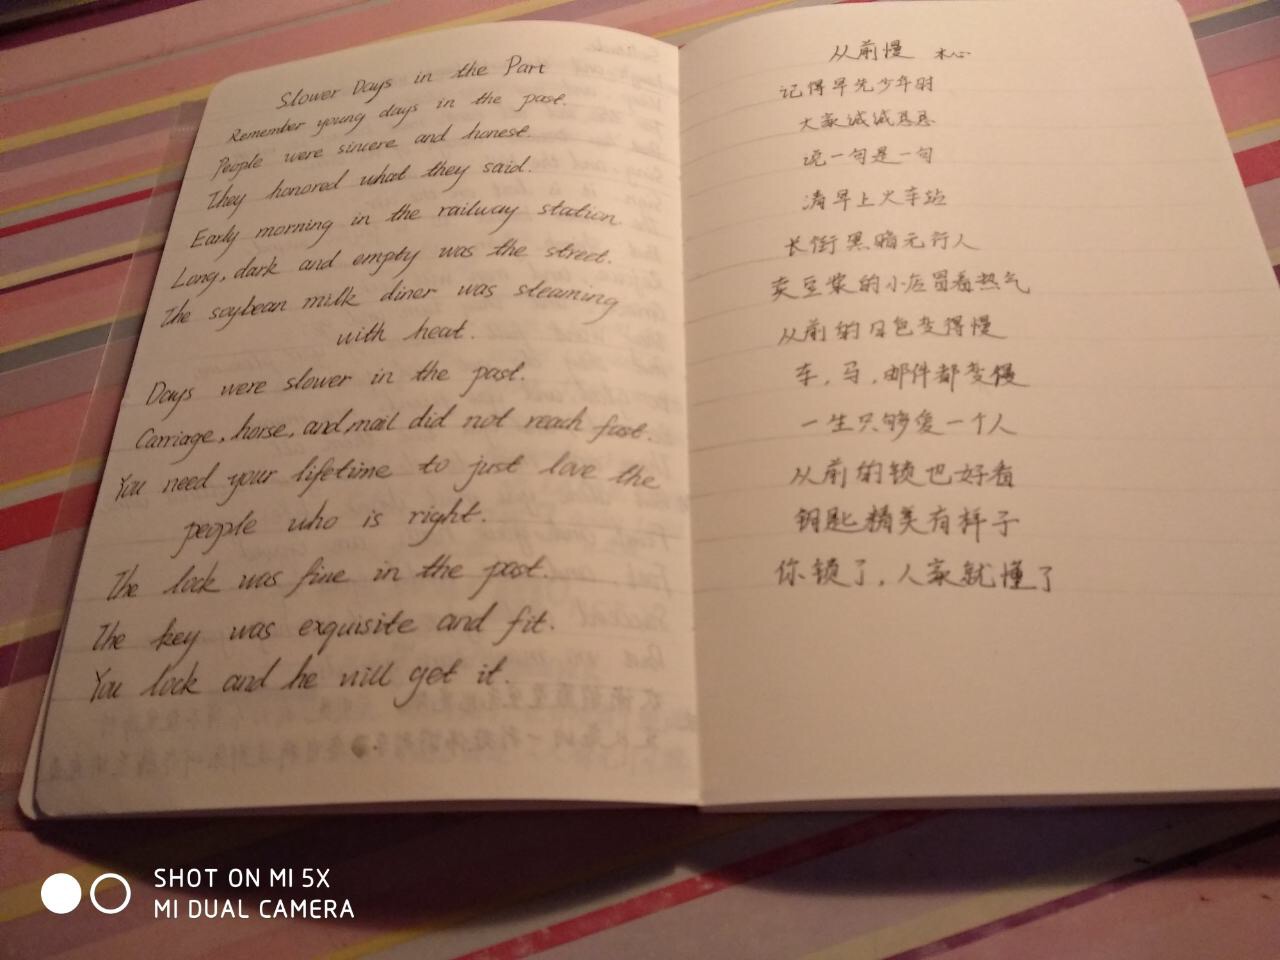 Slower Days in the Part
Remember young days in the past.
People were sincere and honest.
They honored what they said.
Early morning in the railway station.
Long, dark and empty was the street.
The soybean milk diner was steaming
with heat.
Days were slower in the past.
Carriage, horse, and mail did not reach fast.
You need your lifetime to just love the
people who is right.
The lock was fine in the past.
The key was exquisite and fit.
You lock and he will get it.
从前慢 木心
记得早先少年时
大家诚诚恳恳
说一句是一句
清早上火车站
长街黑暗无行人
卖豆浆的小店冒着热气
从前的日色变得慢
车，马，邮件都变慢
一生只够爱一个人
从前的锁也好看
钥匙精美有样子
你锁了，人家就懂了
SHOT ON MI 5X
MI DUAL CAMERA